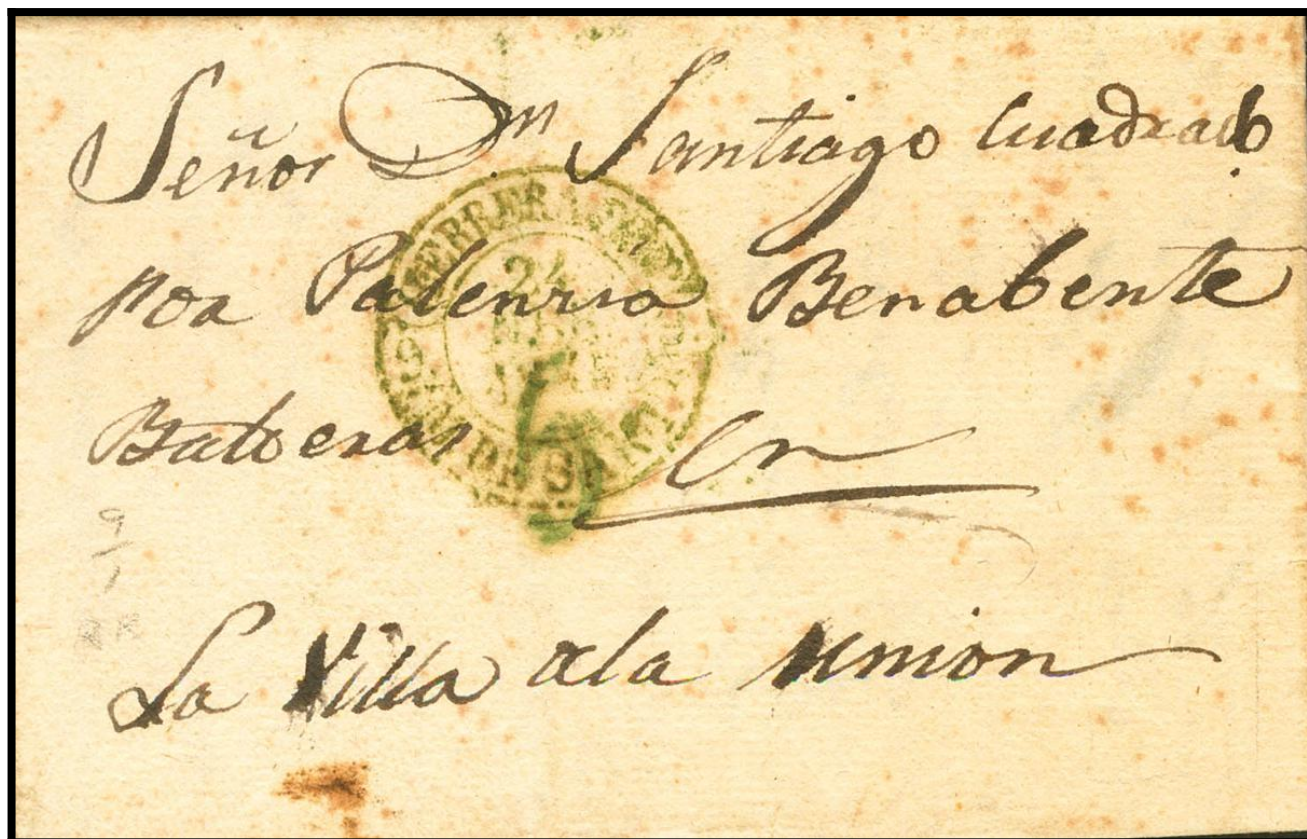 Señor Dn Santiago Cuadrado
por Palencia Benabente
en
La Villa de la Union
24